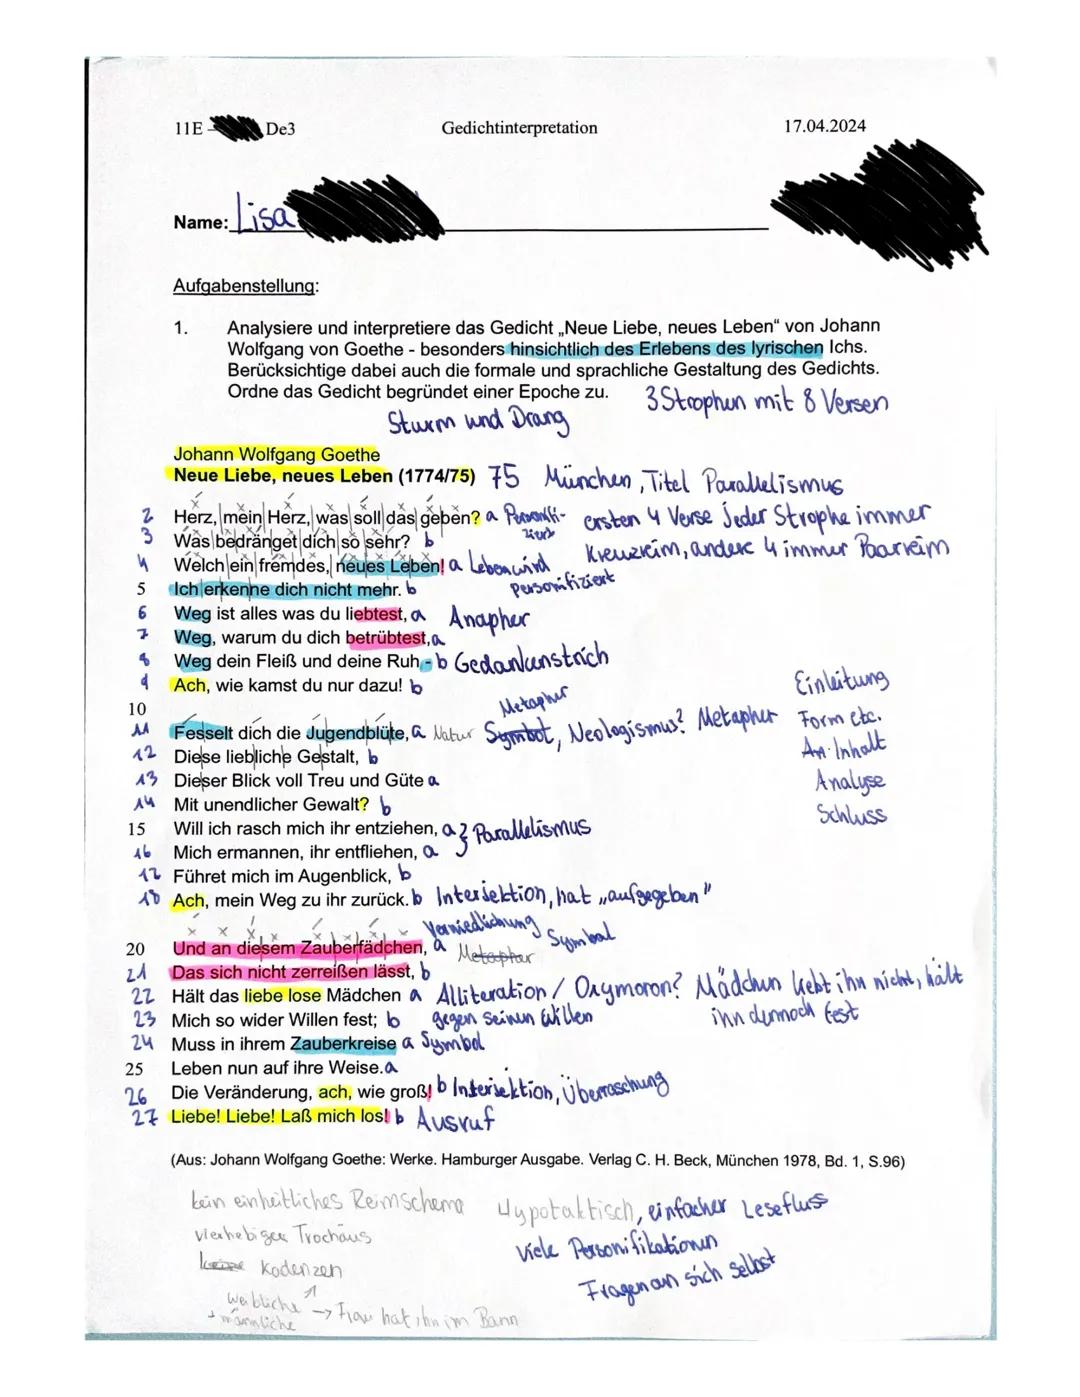 11E - De3 Gedichtinterpretation 17.04.2024
Name: Lisa
Aufgabenstellung:
1. Analysiere und interpretiere das Gedicht „Neue Liebe, neues Leben“ von Johann
Wolfgang von Goethe - besonders hinsichtlich des Erlebens des lyrischen Ichs.
Berücksichtige dabei auch die formale und sprachliche Gestaltung des Gedichts.
Ordne das Gedicht begründet einer Epoche zu. 3 Strophen mit 8 Versen
Sturm und Drang
Johann Wolfgang Goethe
Neue Liebe, neues Leben (1774/75) 75 München, Titel Parallelismus
2 Herz, mein Herz, was soll das geben? a Personifi- ersten 4 Verse Jeder Strophe immer
ziert
3 Was bedränget dich so sehr? b Kreuzreim, andere 4 immer Paarreim
4 Welch ein fremdes, neues Leben! a Leben wird
personifiziert
5 Ich erkenne dich nicht mehr. b
6 Weg ist alles was du liebtest, a Anapher
7 Weg, warum du dich betrübtest, a
8 Weg dein Fleiß und deine Ruh - b Gedankenstrich
9 Ach, wie kamst du nur dazu! b Einleitung
10 Metapher
11 Fesselt dich die Jugendblüte, a Natur Symbol, Neologismus? Metapher Form etc.
12 Diese liebliche Gestalt, b An. Inhalt
13 Dieser Blick voll Treu und Güte a Analyse
14 Mit unendlicher Gewalt? b Schluss
15 Will ich rasch mich ihr entziehen, a } Parallelismus
16 Mich ermannen, ihr entfliehen, a
17 Führet mich im Augenblick, b
18 Ach, mein Weg zu ihr zurück. b Intersektion, hat „aufgegeben"
Verniedlichung
20 Und an diesem Zauberfädchen, a Metapher Symbol
21 Das sich nicht zerreißen lässt, b
22 Hält das liebe lose Mädchen a Alliteration / Oxymoron? Mädchen liebt ihn nicht, hält
23 Mich so wider Willen fest; b gegen seinen Willen ihn dennoch fest
24 Muss in ihrem Zauberkreise a Symbol
25 Leben nun auf ihre Weise. a
26 Die Veränderung, ach, wie groß! b Intersektion, Überraschung
27 Liebe! Liebe! Laß mich los! b Ausruf
(Aus: Johann Wolfgang Goethe: Werke. Hamburger Ausgabe. Verlag C. H. Beck, München 1978, Bd. 1, S.96)
kein einheitliches Reimschema Hypotaktisch, einfacher Lesefluss
vierhebiger Trochäus Viele Personifikationen
keine Kadenzen Fragen an sich selbst
weibliche
+ männliche → Frau hat ihn im Bann